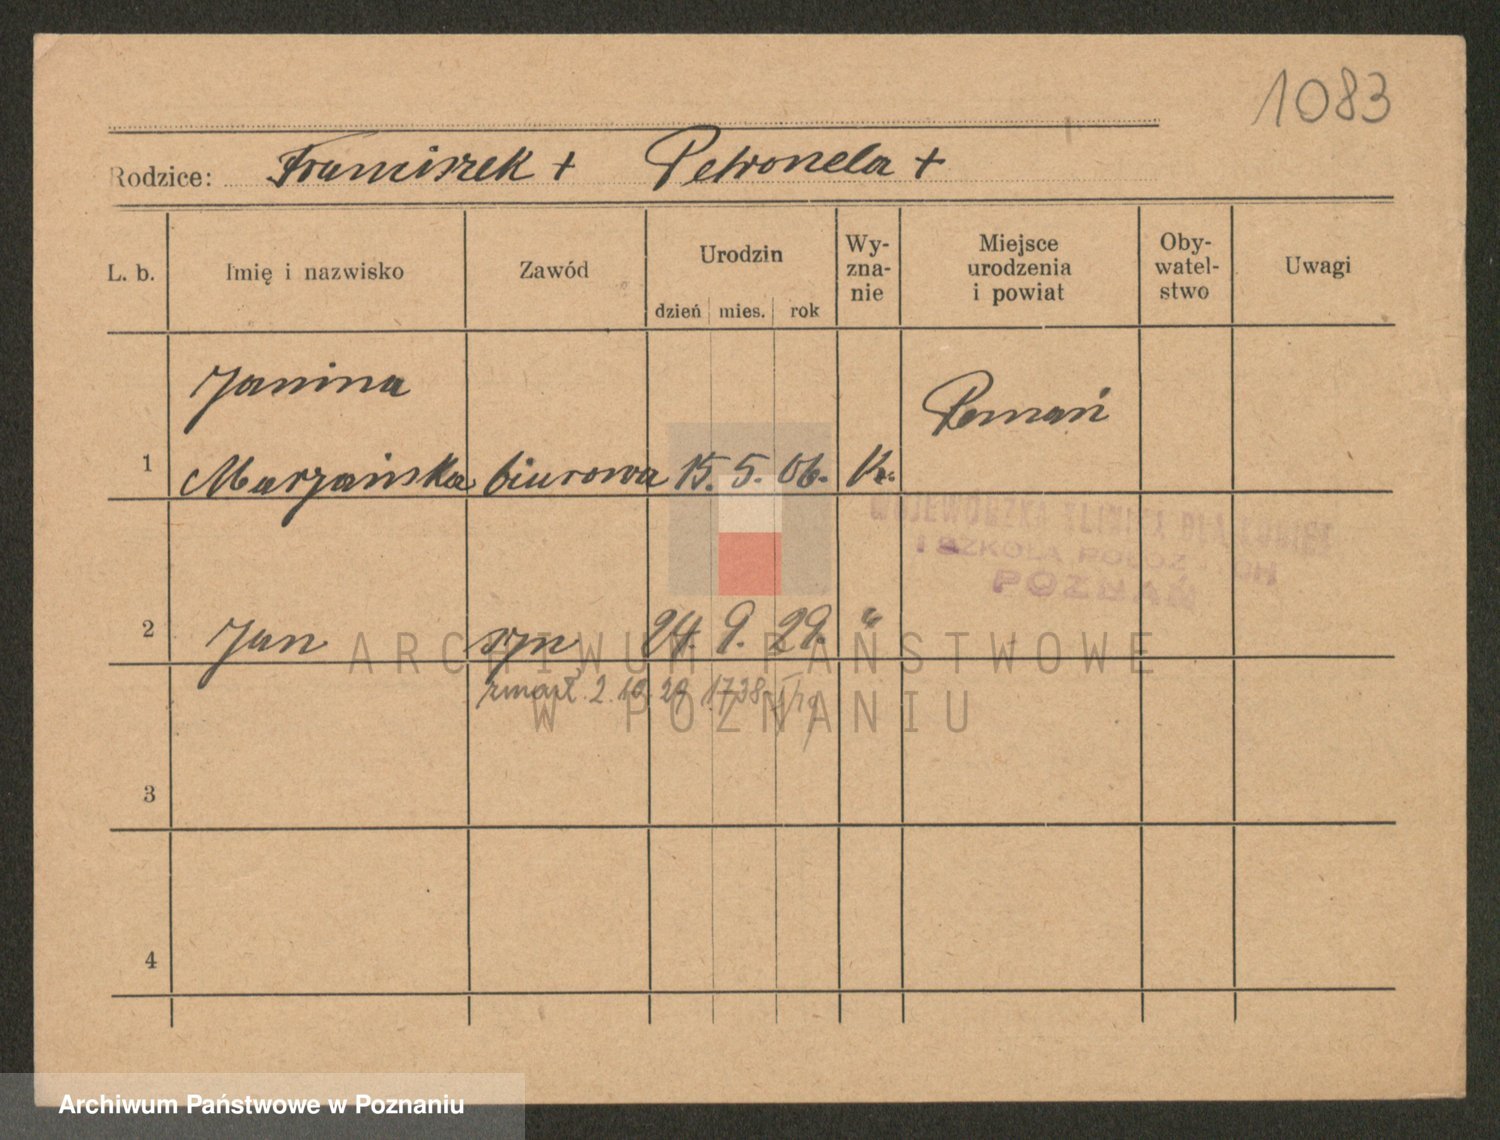 1083
Rodzice: Franciszek + Petronela +
L. b. Imię i nazwisko Zawód Urodzin dzień mies. rok Wy-zna-nie Miejsce urodzenia i powiat Oby-watel-stwo Uwagi
Janina Poznań
1 Marzańska biurowa 15. 5. 06. K.
WOJEWÓDZKA KLINIKA DLA KOBIET
I SZKOŁA POŁOŻ
POZNAŃ
2 Jan syn 24. 9. 29. "
ARCHIWUM PAŃSTWOWE
zmarł 2.10.29 1738
W POZNANIU
3
4
Archiwum Państwowe w Poznaniu